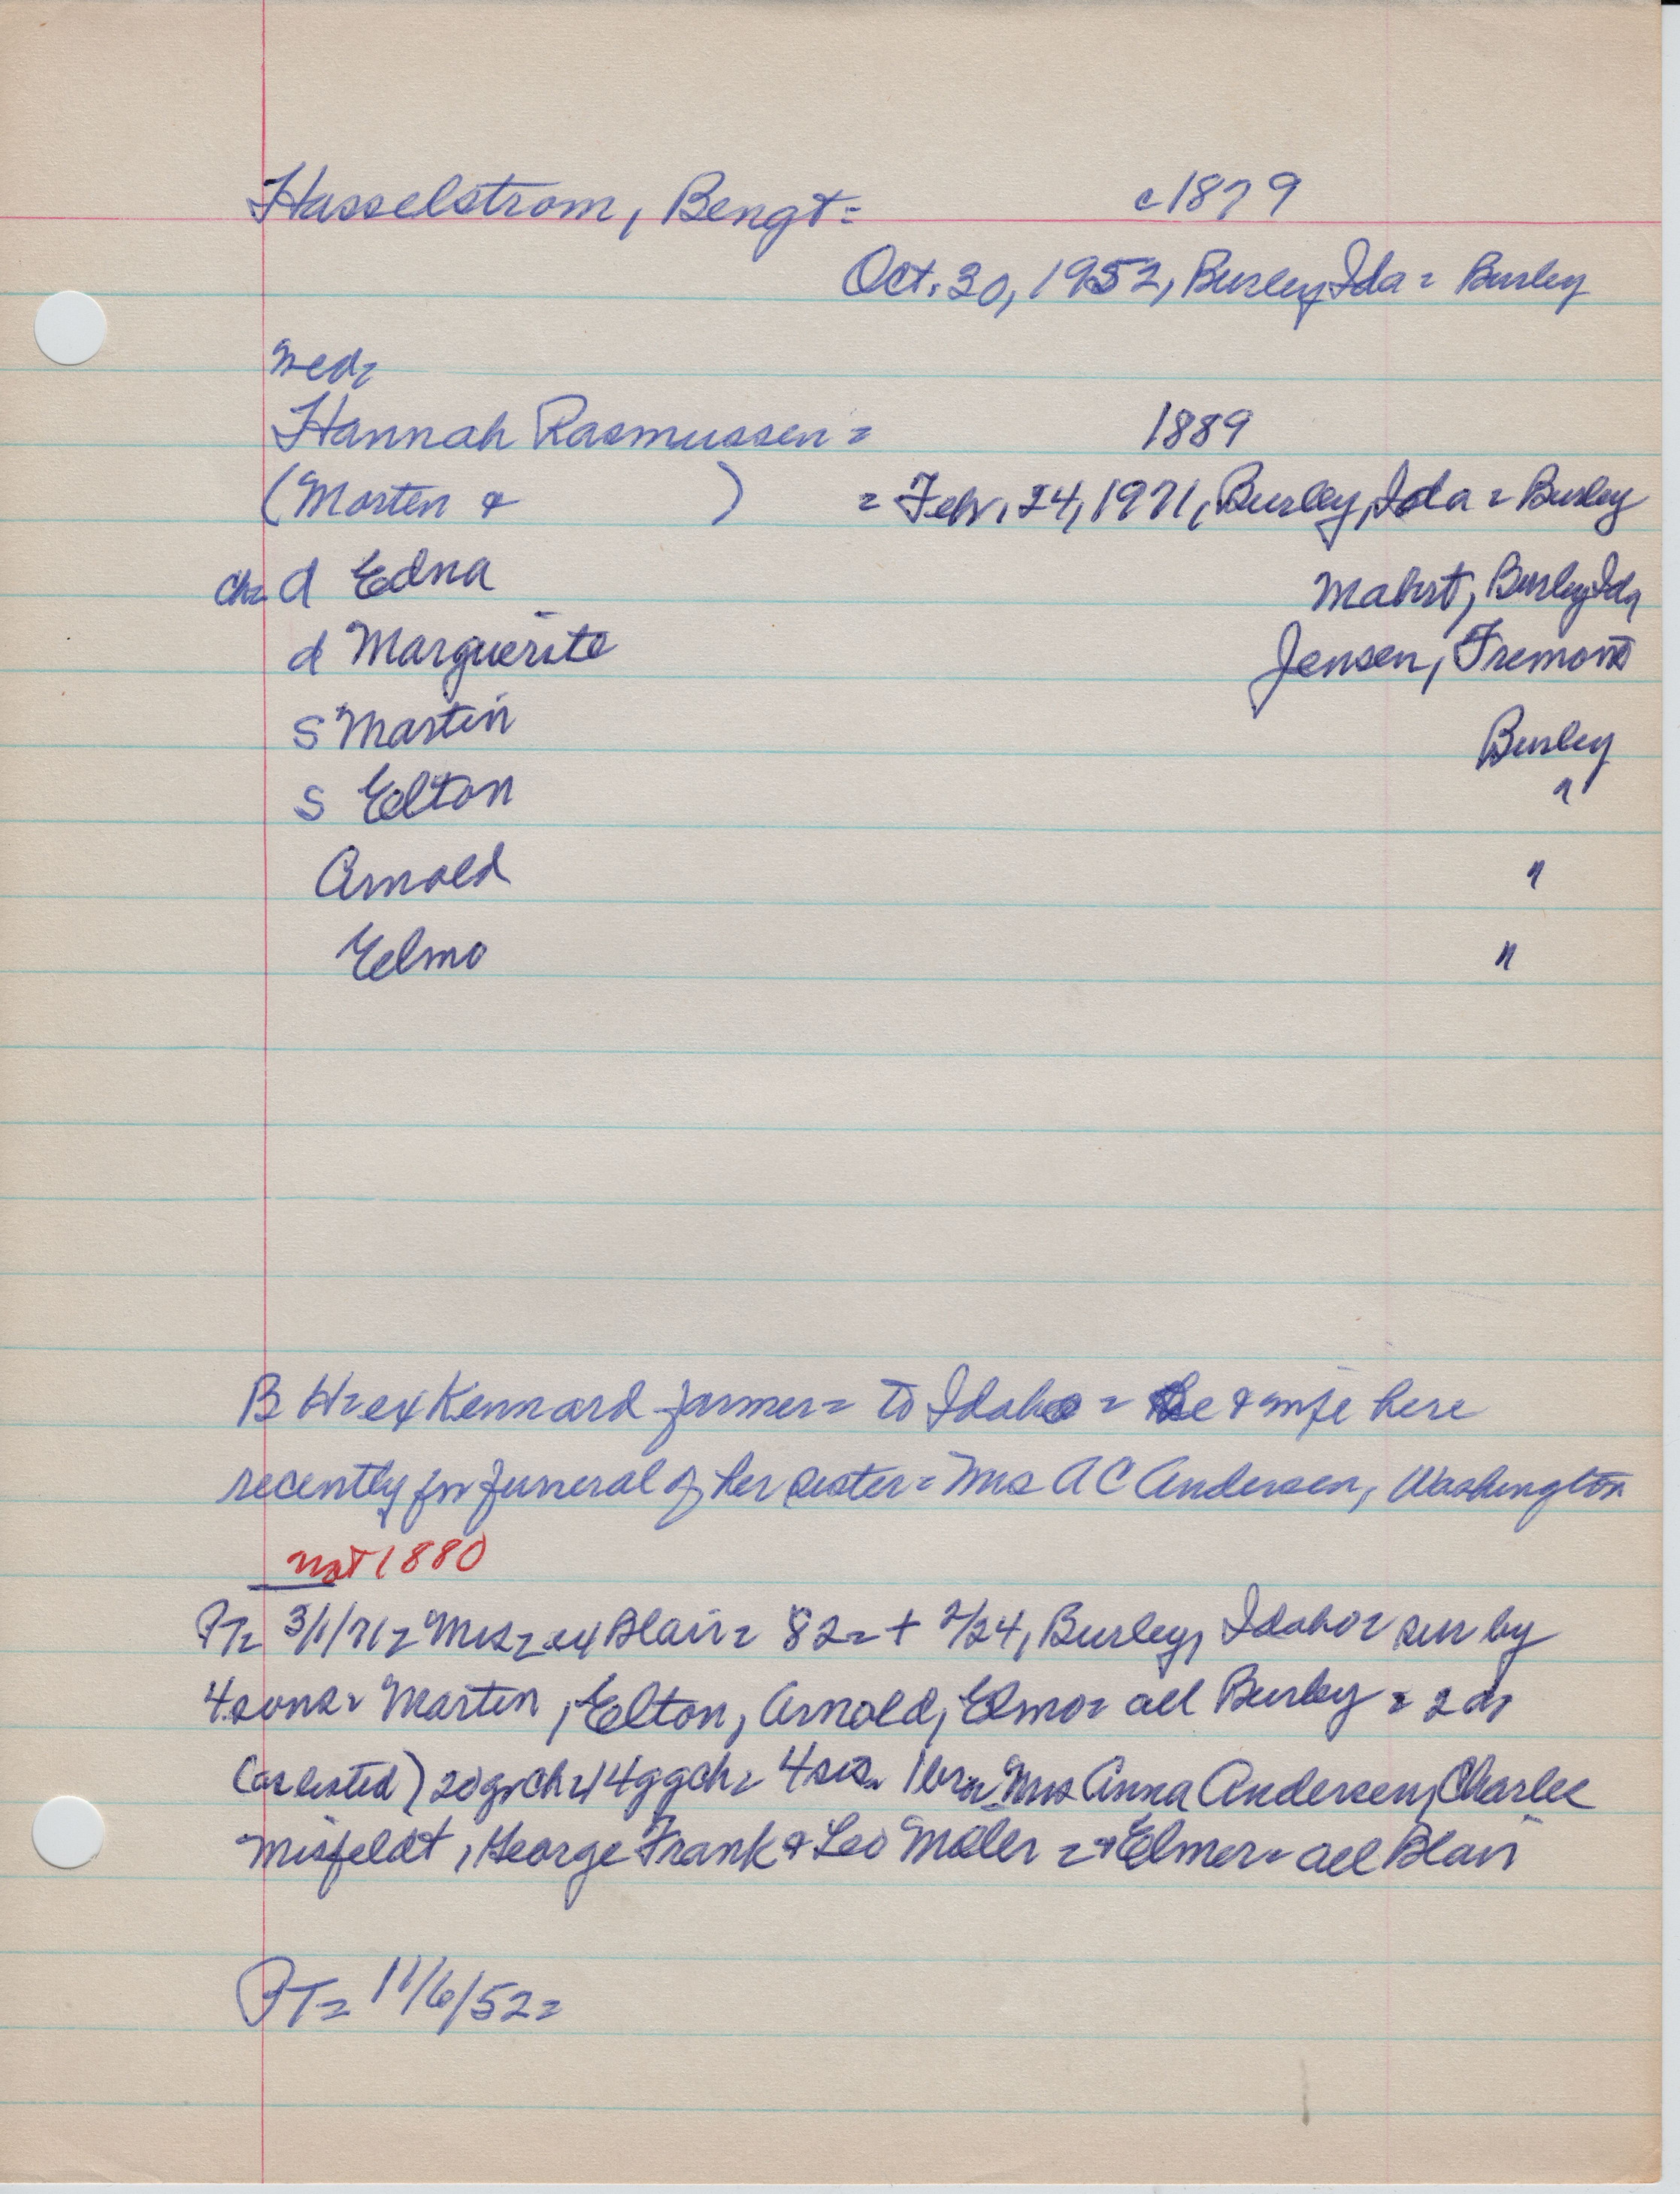 Hasselstrom, Bengt = c1879
Oct. 30, 1952, Burley, Ida = Burley
Wed=
Hannah Rasmussen = 1889
(Morten & ) = Feb. 24, 1971, Burley, Ida = Burley
Ch= d Edna Burley, Ida
d Marguerite Jensen, Fremont
s Martin Burley
s Elton "
Arnold "
Elmo "
B H= ex Kennard farmer = to Idaho = He & wife here
recently for funeral of her sister = Mrs A C Andersen, Washington
not 1880
PT= 3/1/71= Mrs= ex Blair = 82 = + 2/24, Burley, Idaho = sur by
4 sons = Martin, Elton, Arnold, Elmo = all Burley = 2 ds
(as listed) 20 grch = 14 ggch = 4 sis = 1 br = Mrs Anna Andersen, Charles
Misfeldt, George Frank & Leo Moller = & Elmer = all Blair
PT= 11/6/52=